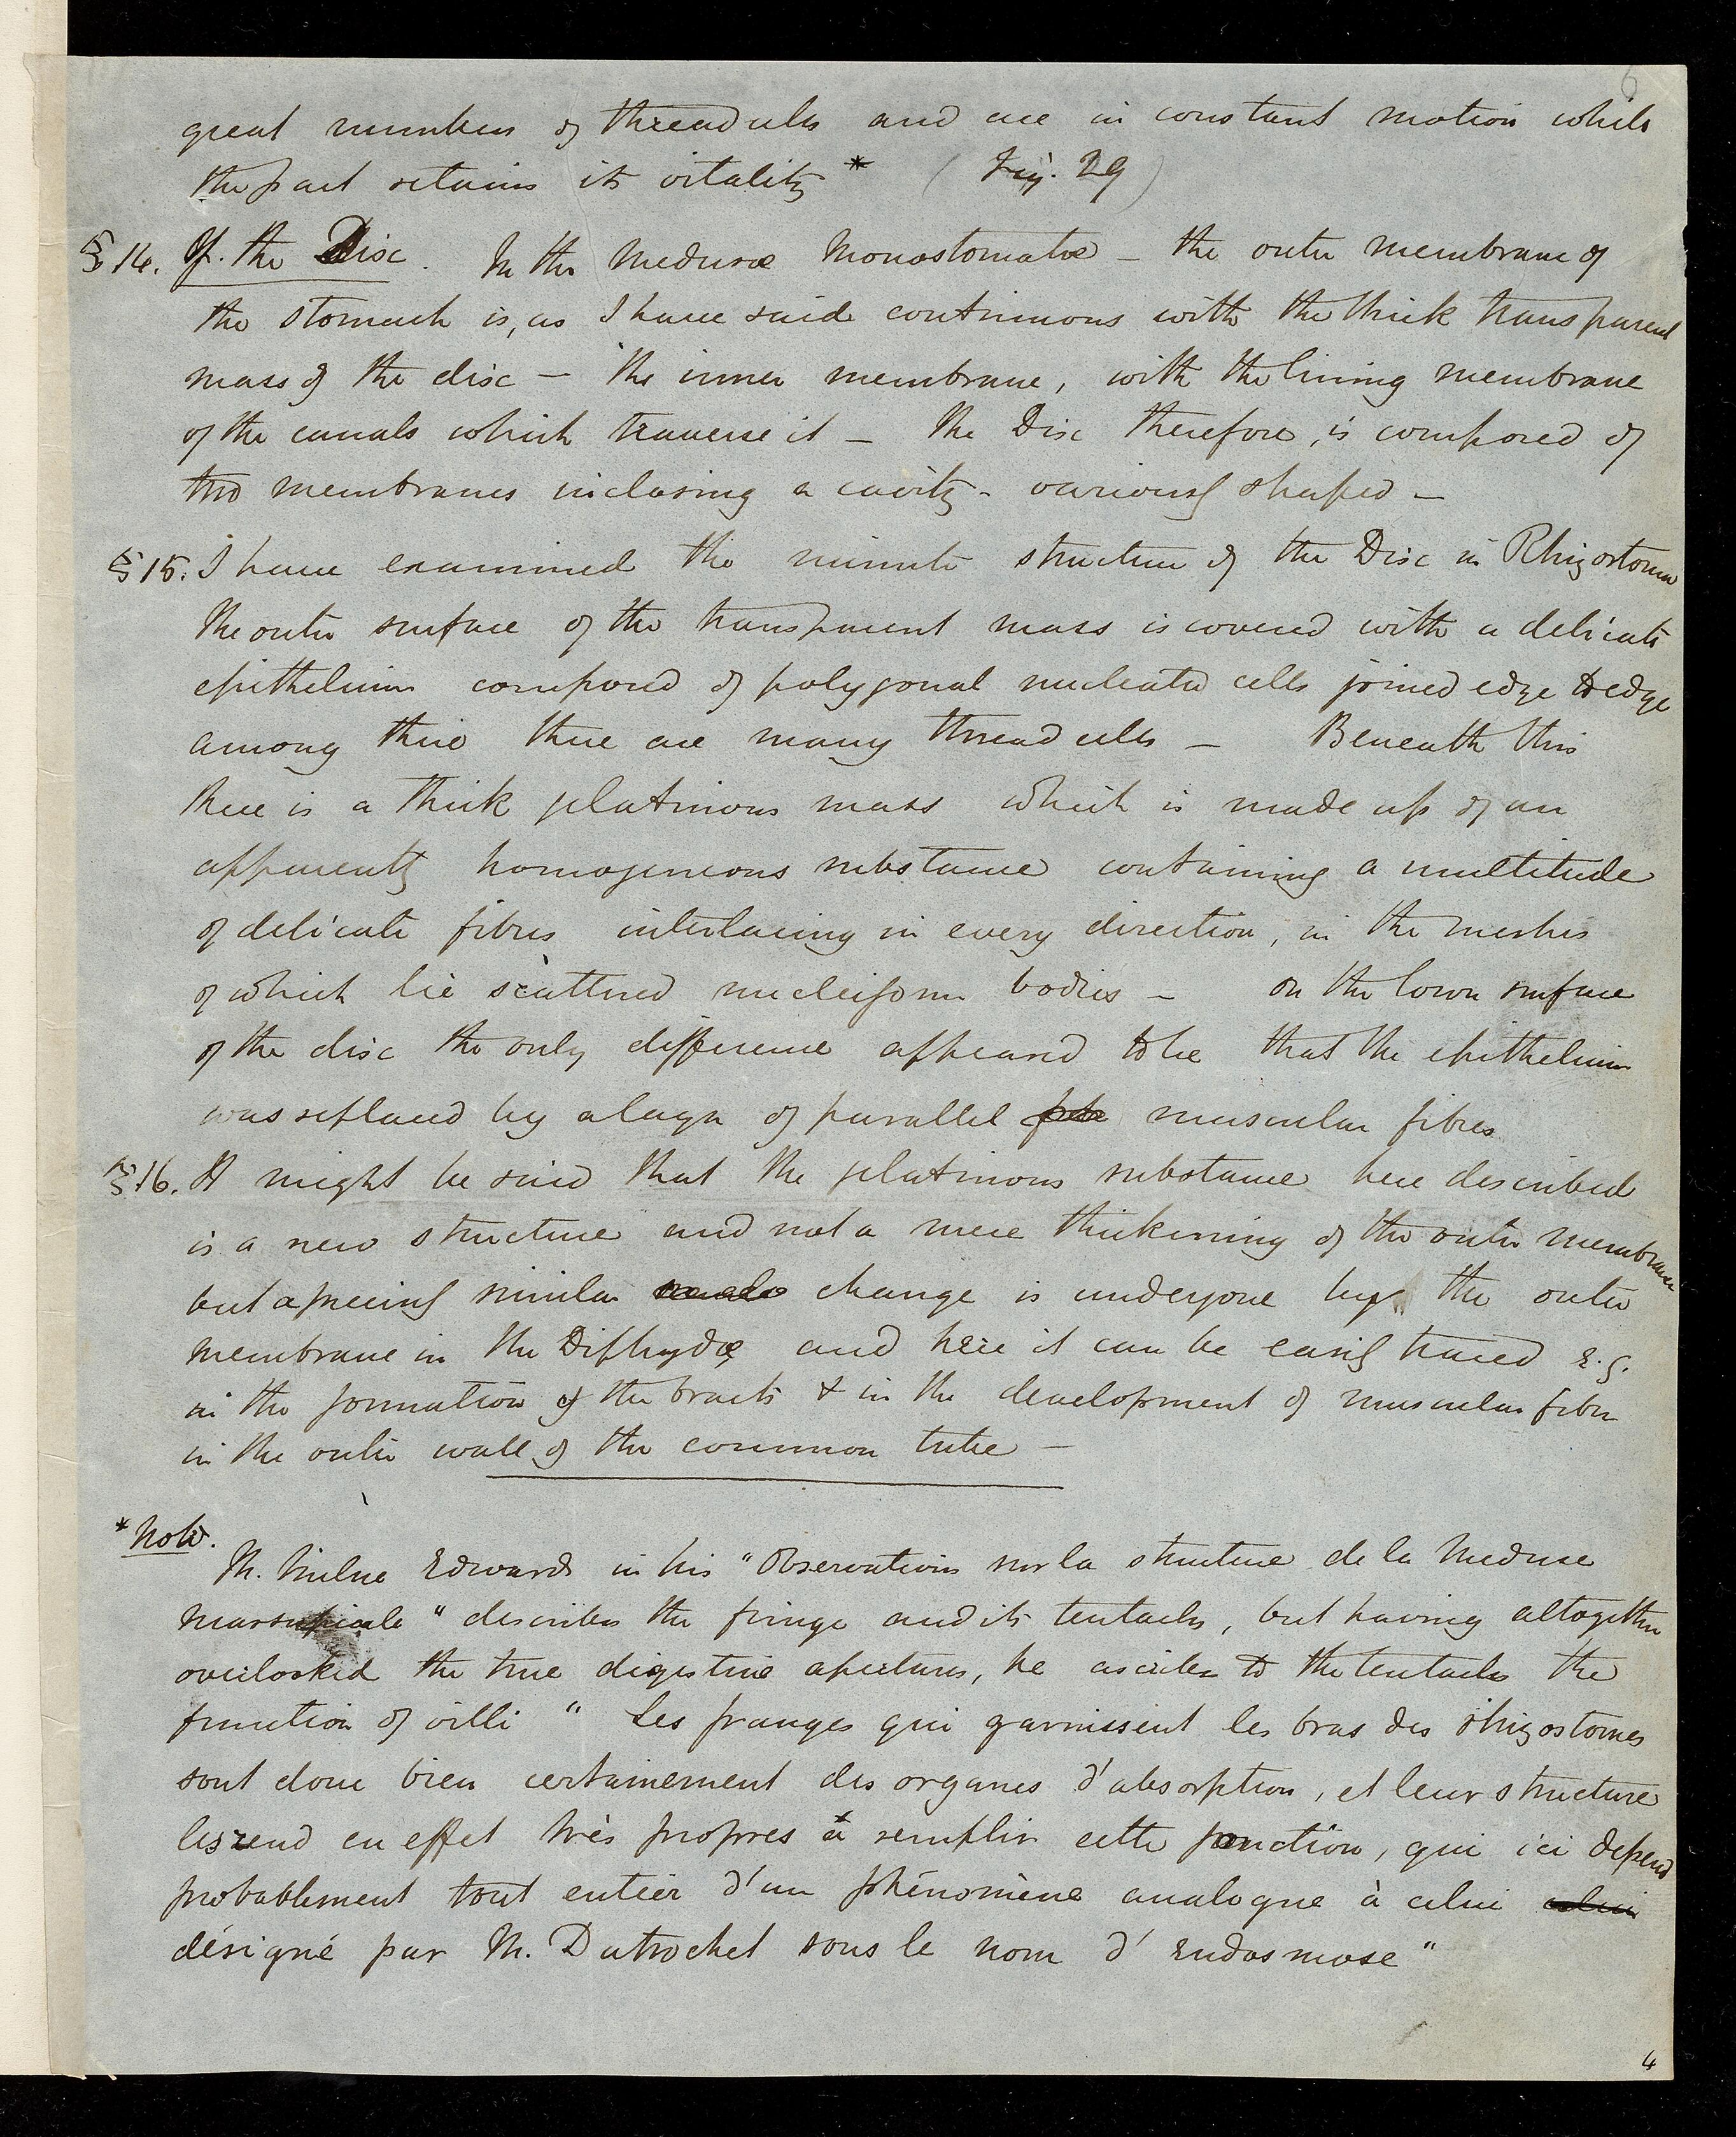 6
great numbers of thread cells and are in constant motion while
the part retains its vitality * (Fig. 29)
§ 14. Of the Disc. In the Medusæ Monostomatæ – the outer membrane of
the stomach is, as I have said continuous with the thick transparent
mass of the disc – the inner membrane, with the lining membrane
of the canals which traverse it – The Disc therefore, is composed of
two membranes inclosing a cavity – variously shaped –
§ 15. I have examined the minute structure of the Disc in Rhizostoma
The outer surface of the transparent mass is covered with a delicate
epithelium composed of polygonal nucleated cells joined edge to edge
among these there are many thread cells – Beneath this
there is a thick gelatinous mass which is made up of an
apparently homogeneous substance containing a multitude
of delicate fibres interlacing in every direction, in the meshes
of which lie scattered nucleiform bodies – On the lower surface
of the disc the only difference appeared to be that the epithelium
was replaced by a layer of parallel muscular fibres
§ 16. It might be said that the gelatinous substance here described
is a new structure and not a mere thickening of the outer membrane
but a precisely similar change is undergone by the outer
membrane in the Diphydæ and here it can be easily traced E.g.
in the formation of the bracts & in the development of muscular fibre
in the outer wall of the common tube –
* Note.
M. Milne Edwards in his "Observations sur la structure de la Meduse
marsupiale" describes the fringe and its tentacles, but having altogether
overlooked the true digestive apertures, he ascribes to the tentacles the
function of villi "Les franges qui garnissent les bras des rhizostomes
sont donc bien certainement des organes d'absorption, et leur structure
les rend en effet très propres à remplir cette fonction, qui ici depend
probablement tout entier d'un phénomène analogue à celui celui
désigné par M. Dutrochet sous le nom d'Endosmose"
4